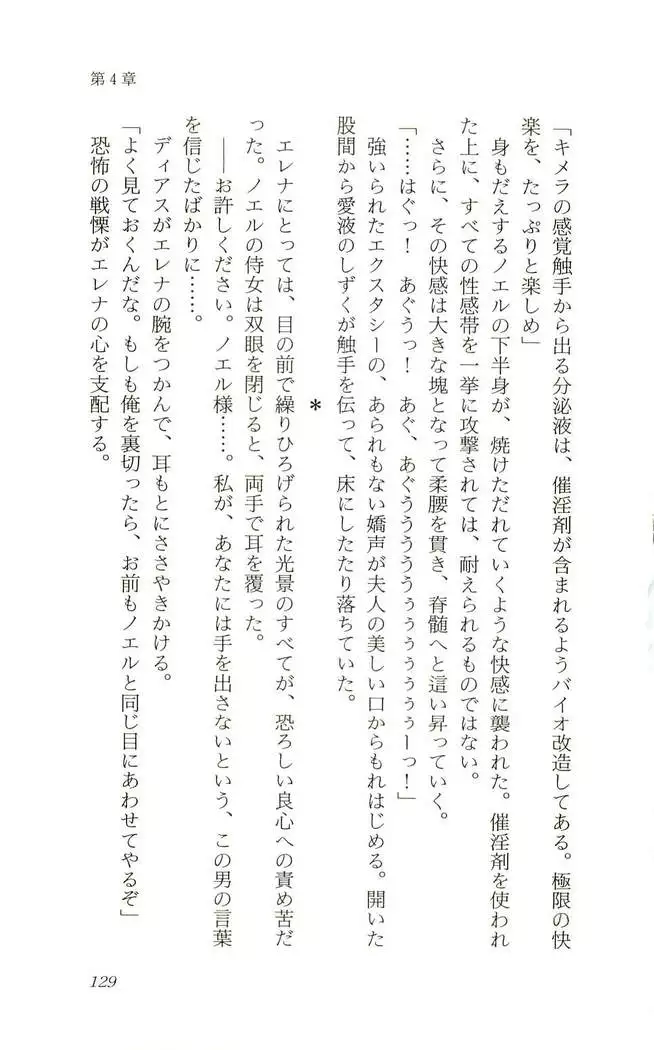 第4章
「キメラの感覚触手から出る分泌液は、催淫剤が含まれるようバイオ改造してある。極限の快
楽を、たっぷりと楽しめ」
身もだえするノエルの下半身が、焼けただれていくような快感に襲われた。催淫剤を使われ
た上に、すべての性感帯を一挙に攻撃されては、耐えられるものではない。
さらに、その快感は大きな塊となって柔腰を貫き、脊髄へと這い昇っていく。
「……はぐっ！　あぐうっ！　あぐ、あぐううううぅぅぅぅぅーっ！」
強いられたエクスタシーの、あられもない嬌声が夫人の美しい口からもれはじめる。開いた
股間から愛液のしずくが触手を伝って、床にしたたり落ちていた。
*
エレナにとっては、目の前で繰りひろげられた光景のすべてが、恐ろしい良心への責め苦だ
った。ノエルの侍女は双眼を閉じると、両手で耳を覆った。
――お許しください。ノエル様……。私が、あなたには手を出さないという、この男の言葉
を信じたばかりに……。
ディアスがエレナの腕をつかんで、耳もとにささやきかける。
「よく見ておくんだな。もしも俺を裏切ったら、お前もノエルと同じ目にあわせてやるぞ」
恐怖の戦慄がエレナの心を支配する。
129